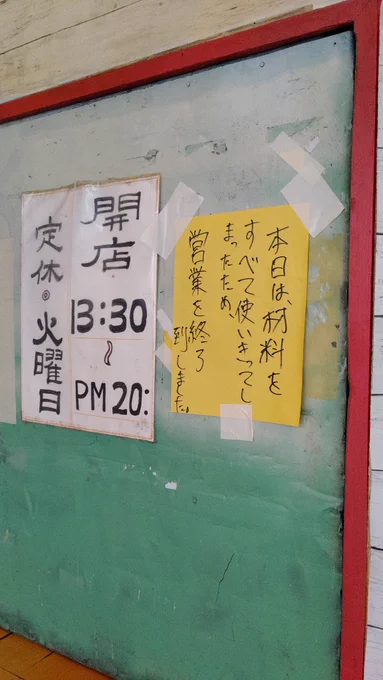 開店
13:30
〜
PM 20:
定休◎火曜日
本日は、材料を
すべて使いきってし
まったため、
営業を終了
致しました。